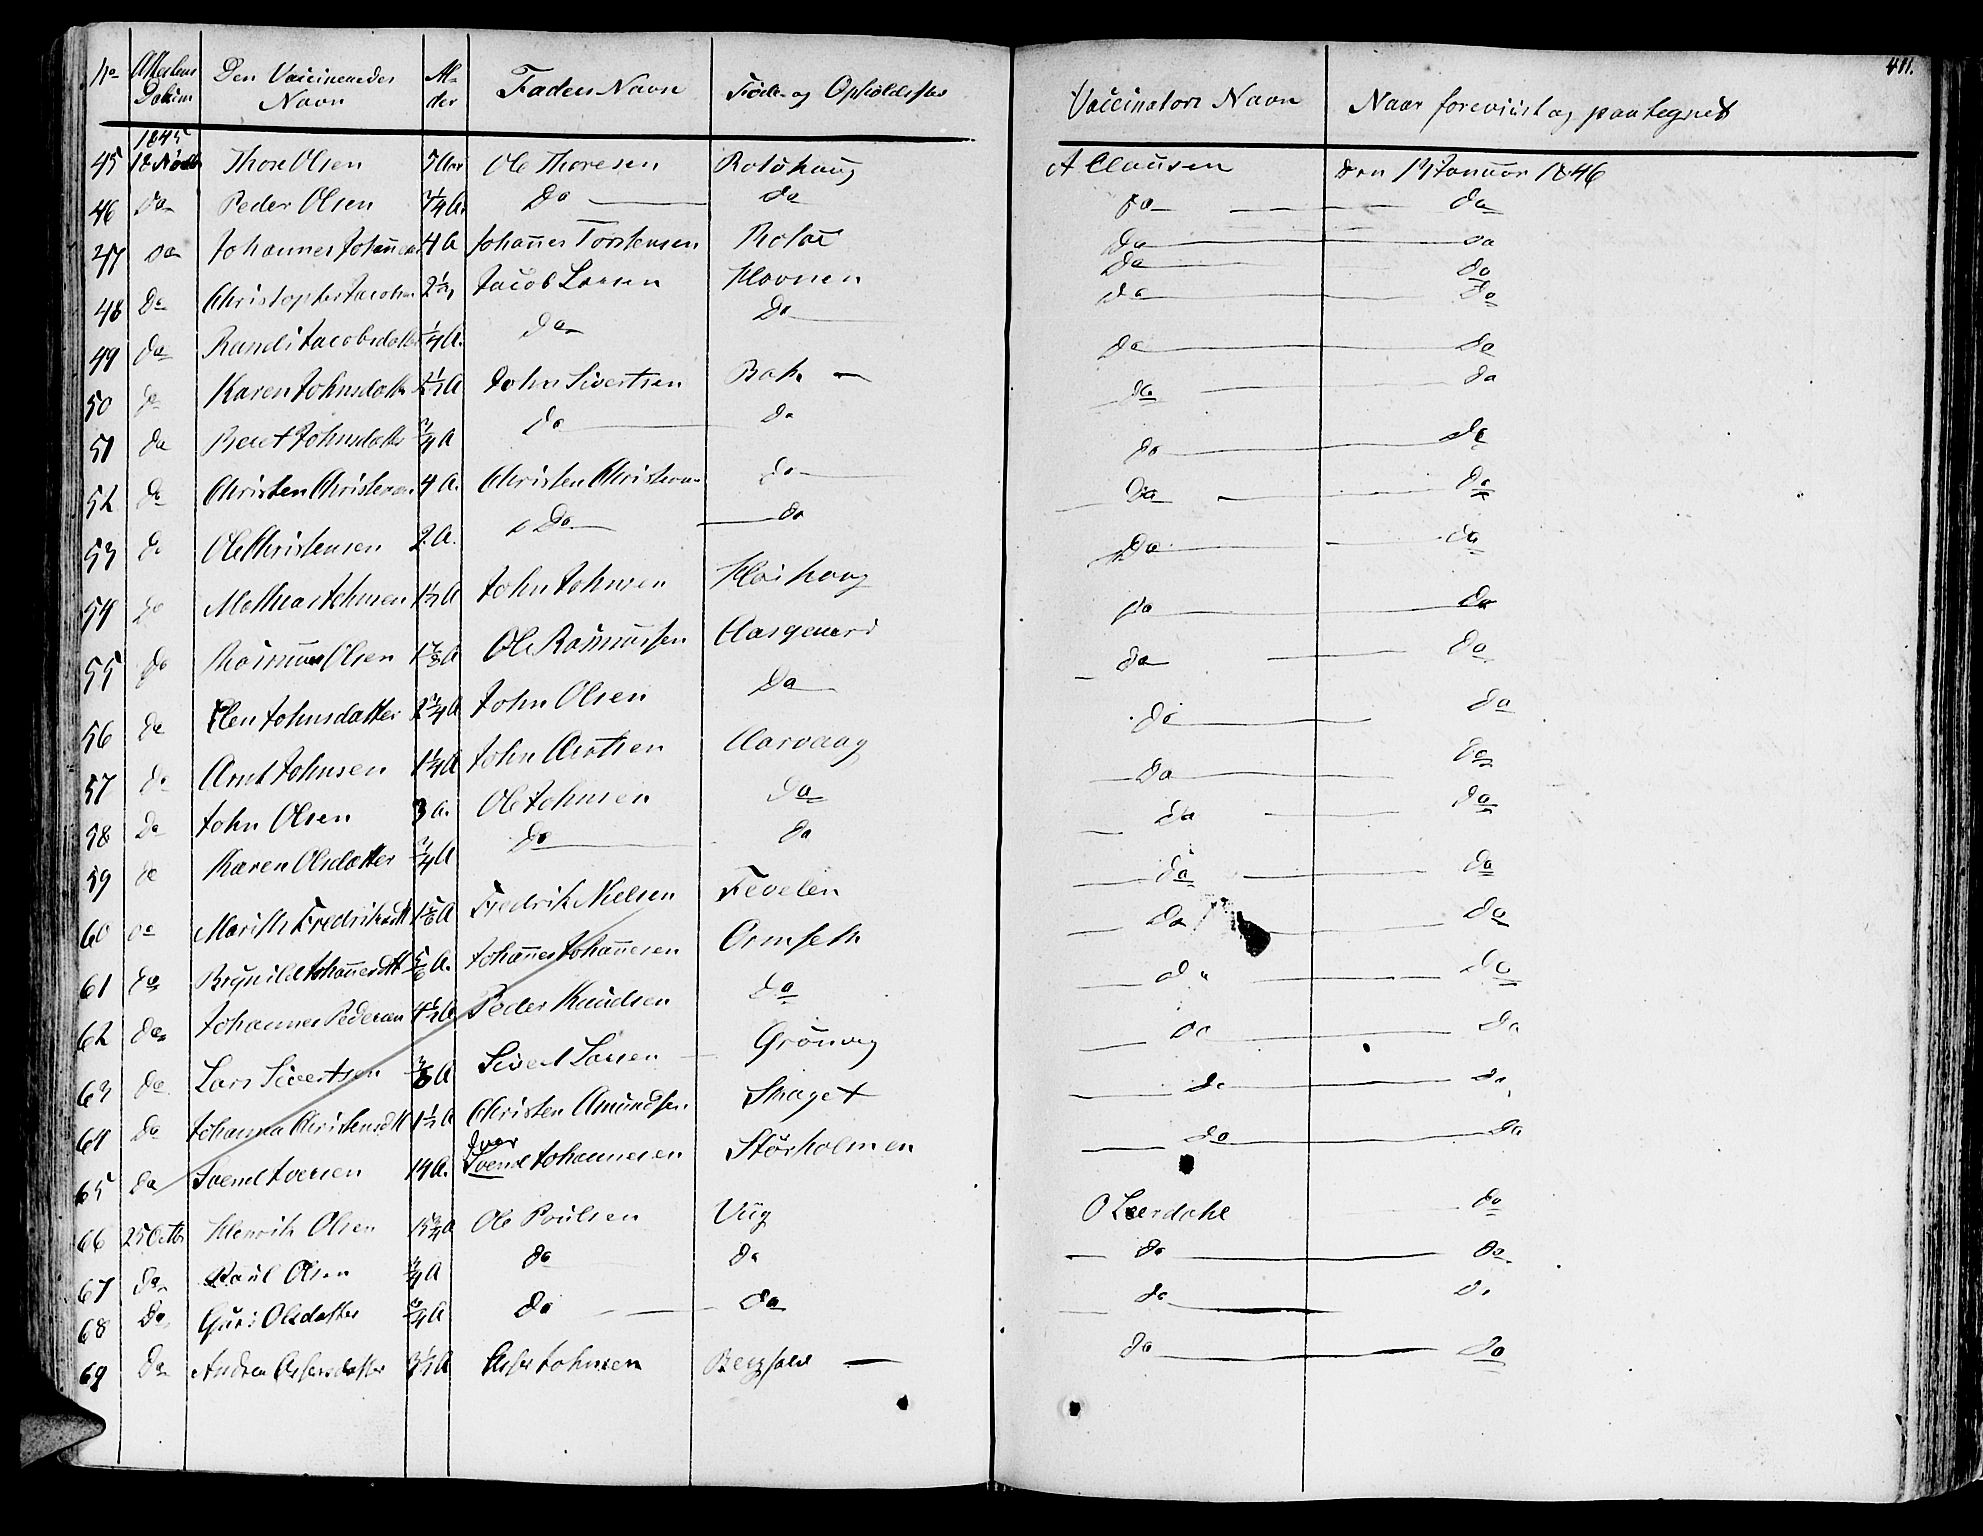 No Attestens Datum Den Vaccineredes Navn Al- der Faders Navn Føde- og Opholdssted Vaccinators Navn Naar foreviist og paategnet 411.
1845
45 Thore Olsen 5 Aar Ole Thoresen Rotshaug A Clausen den Januar 1846
46 do Peder Olsen Do do do do
47 do Johannes 4 A Johannes Torstensen do do
48 do Christopher Jacobsen Jacob Larsen Havnen Do do
49 do Randi Jacobsdatter 1/4 A. do Do do do
50 do Karen Johnsdatter John Sivertsen do do
51 do Beret Johnsdatter 3/4 A do do do do
52 do Christen Christensen 4 A. Christen Christensen do do do
53 do Ole Christensen 2 A. Do do Do do
54 do John Johnsen do do
55 do Rasmus Olsen Ole Rasmussen Aasgaard do do
56 do Elen Johnsdatter 2 3/4 A John Olsen Do do do
57 do Arnt Johnsen 1 1/4 A John Arntsen Aarvaag do do
58 do John Olsen 3 A. Ole Johnsen do do do
59 do Karen Olsdatter 3/4 A do do do do
60 do Marith Fredriksdtt Fredrik Nielsen Fevelen do do
61 do Brynild Johannesdtt 5/6 A. Johannes Johannesen Ormseth do do
62 do Johannes Pedersen Peder Knudsen do do do
63 do Lars Sivertsen Sivert Larsen Grønvig do do
64 do Johanna Christensdtt 1 1/2 A Christen Amundsen Skaget do do
65 do Svend Iversen 14 A. Iver Svend Johannesen Størholmen
66 25 Octbr Henrik Olsen Ole Poulsen Viig O Leerdahl do
67 do Paul Olsen do do do do
68 do Guri Olsdatter 3/4 A do do do do
69 do Johnsen do do